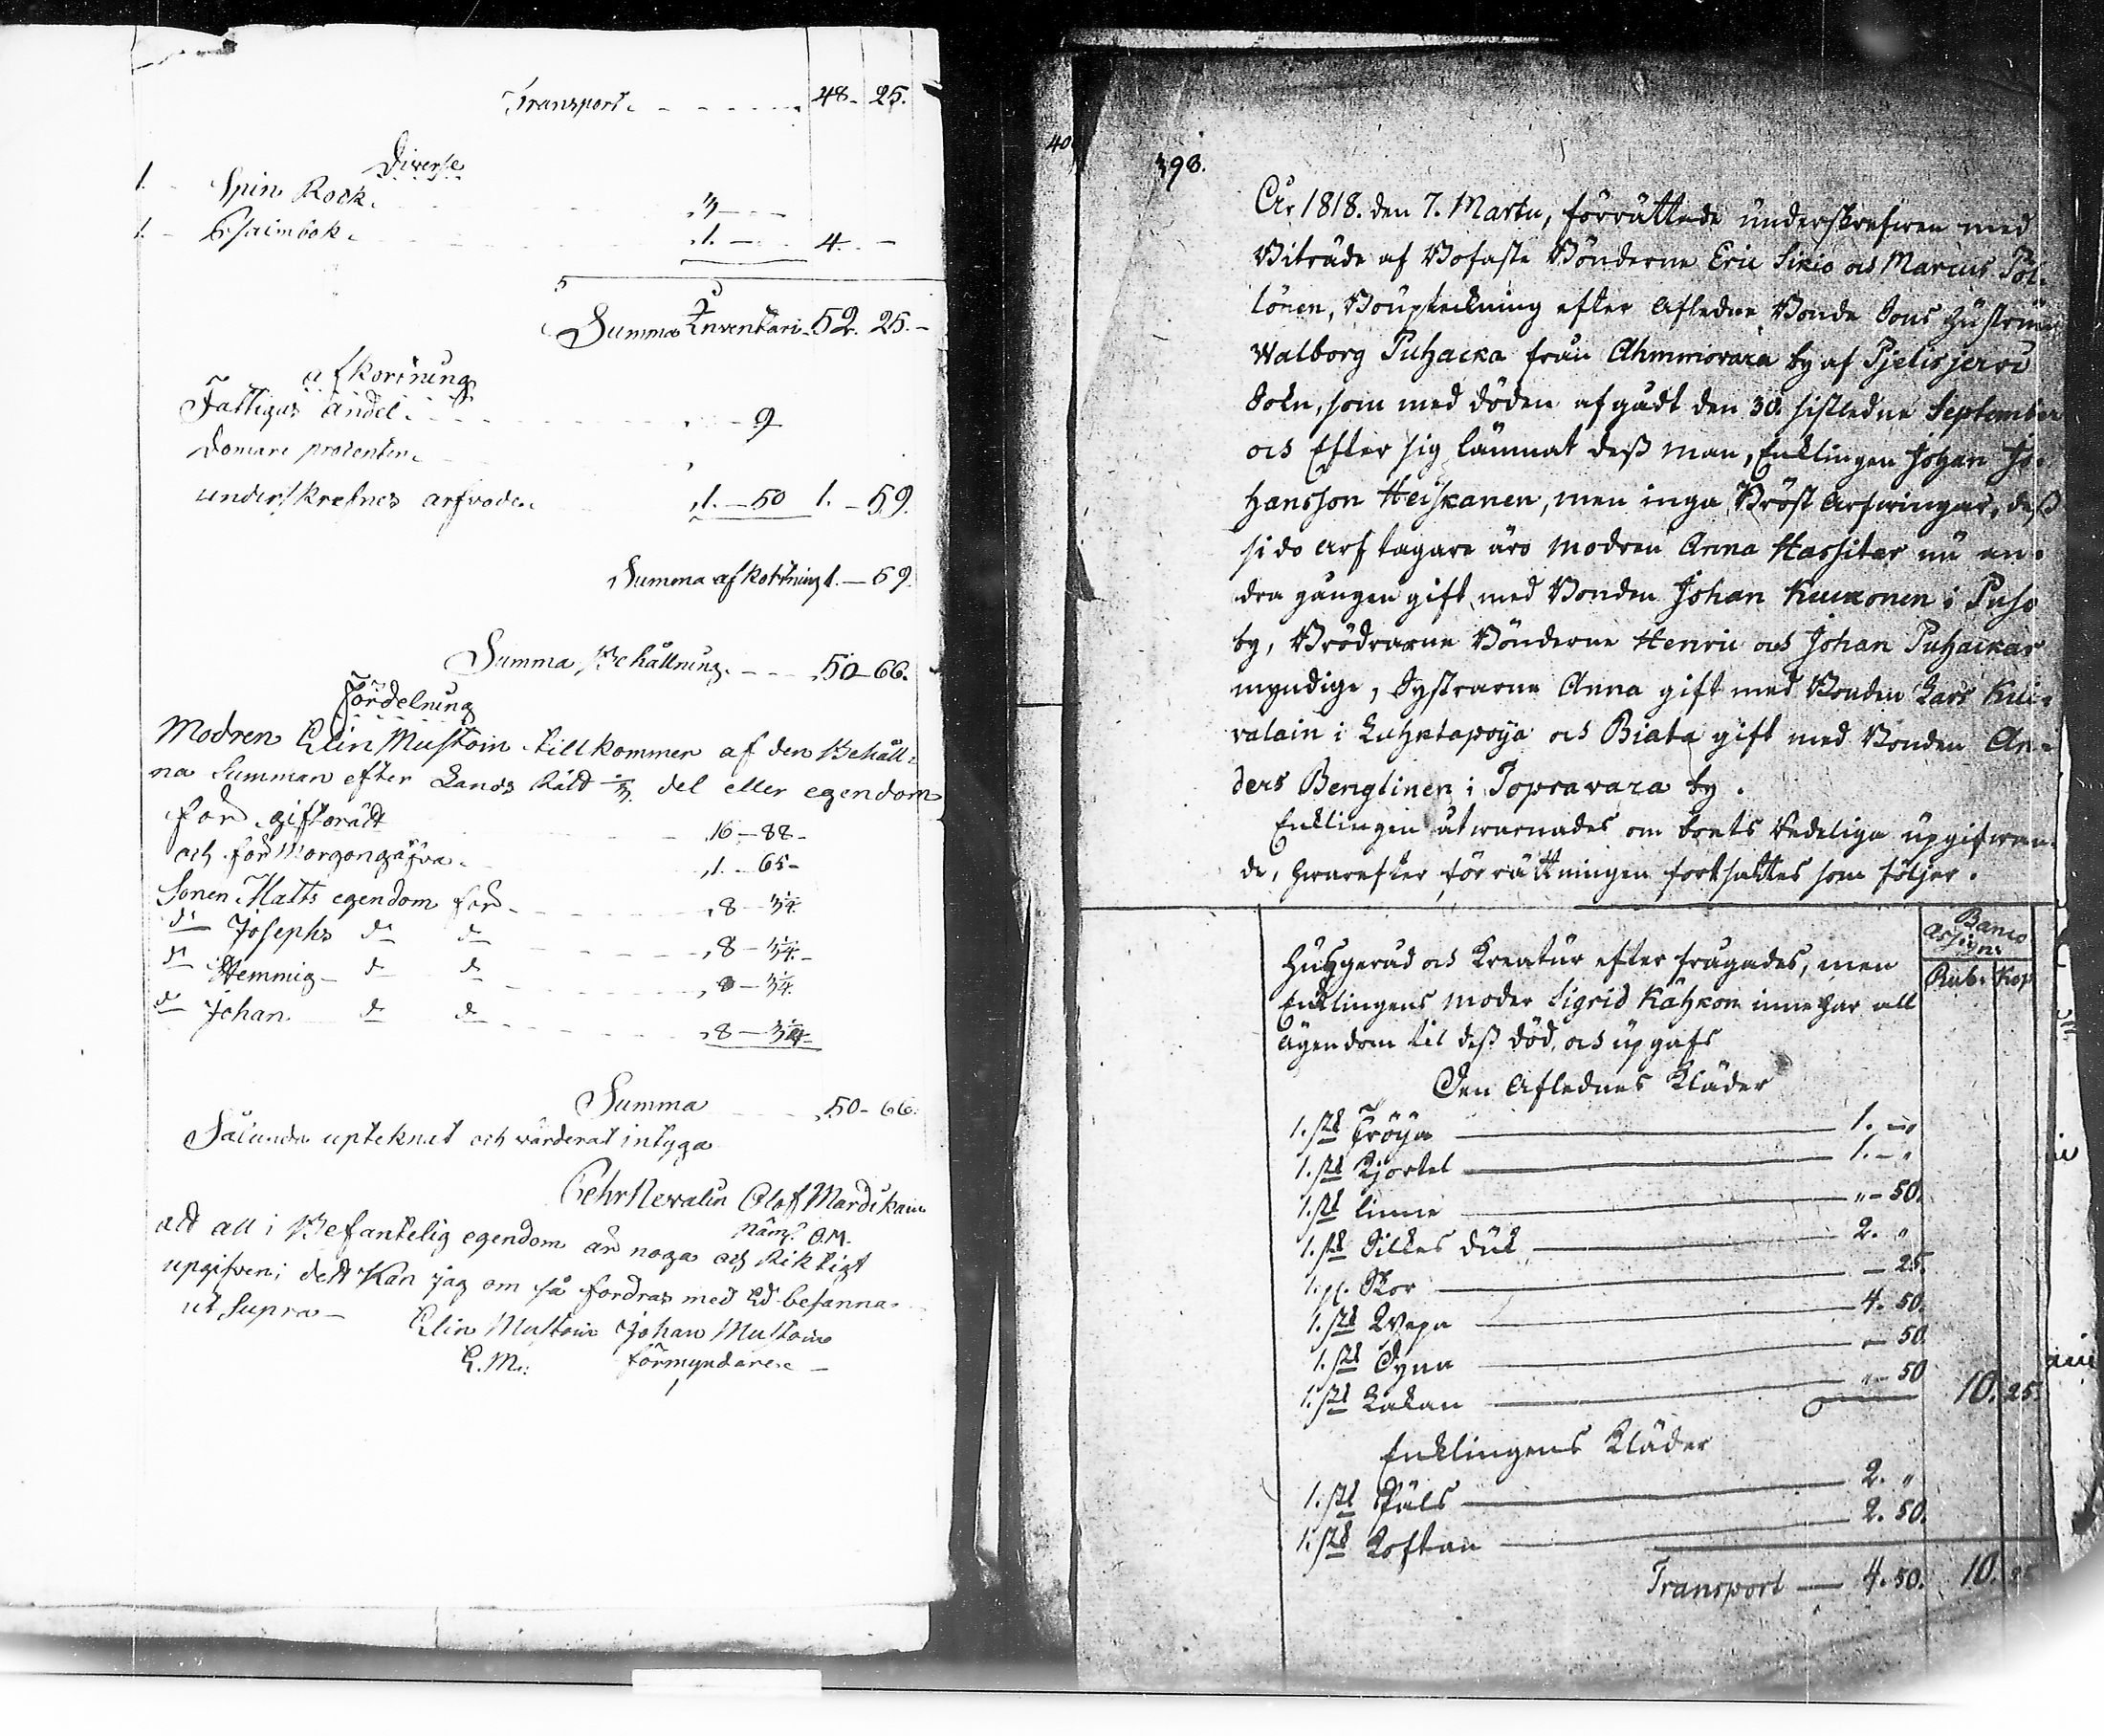 Transport. 48- 25.
Diverse
1. Spin Rock. 3 - -
1. Psalmbok. 1. - 4. -
Summa Inventari. 52. 25. -
afkortning
Fattigas andel. 9
Domare procenten.
underskrefnes arfvode. 1.-50 1.-59.
Summa afkortning 1.-59.
Summa Behållning. 50-66.
Fördelning
Modren Elin Mustoin tillkommer af den Behåll-
na Summan efter Lands Rätt 1/3 del eller egendom
för giftorätt 16-88-
och för Morgongåfva. 1.- 65-
Sonen Matts egendom för 8 - 3¼.
do Josephs do do 8 - 3¼.-
do Hemmig- do do 8 - 3¼.
do Johan. do do 8 - 3¼-
Summa 50-66.
Sålunda upteknat och värderat intyga
Pehr Nevalin Olof Mardikain
Nämd. O.M.
att all i Befintelig egendom är noga och Riktigt
upgifven; dett Kan jag om så fordras med Ed besanna.
ut supra-
Elin Mustoin Johan Mustoin
E.M. förmyndare. -
40
398.
År 1818. den 7. Martii, förrättade underskrefwen med
Biträde af Bofaste Bönderne Eric Sikio och Marcus Pöl-
lönen, Boupteckning efter Aflednе Bonde Sons Hustrun
Walborg Puhacka från Ahmmovara by af Pjelisjerwi
Sokn, som med döden afgådt den 30. sistledne September
och Efter sig lämnat dess man, Enklingen Johan Jo-
hansson Heiskanen, men inga Bröst Arfwingar, dess
sido arftagare äro Modren Anna Hassitar nu an-
dra gången gift med Bonden Johan Kuuronen i Puso
by, Brödrarne Bönderne Henric och Johan Puhackar
myndige, Systrarne Anna gift med Bonden Lars Kui-
valain i Luhtapoija och Biata gift med Bonden An-
ders Bengtinen i Topravara by.
Enklingen åtwarnades om boets redeliga upgifwan-
de, hwarefter förrättningen fortsattes som följer.
Banco
Assigne
Rub. Kop
Husgeråd och Kreatur efterfrågades, men
Enklingens moder Sigrid Kähkön innehar all
ägendom til dess död, och upgafs
Den Aflednes Kläder
1. st Tröija 1. -"
1. st Kjortel 1. - "
1. st linne " - 50.
1. st Silkes duk 2. "
1. p. Skor - 25.
1. st Wepa 4. 50.
1. st Dyna - 50.
1. st Lakan " - 50 10. 25.
Enklingens Kläder
1. st Päls 2. "
1. st Koftan 2. 50.
Transport - 4. 50. 10. 25